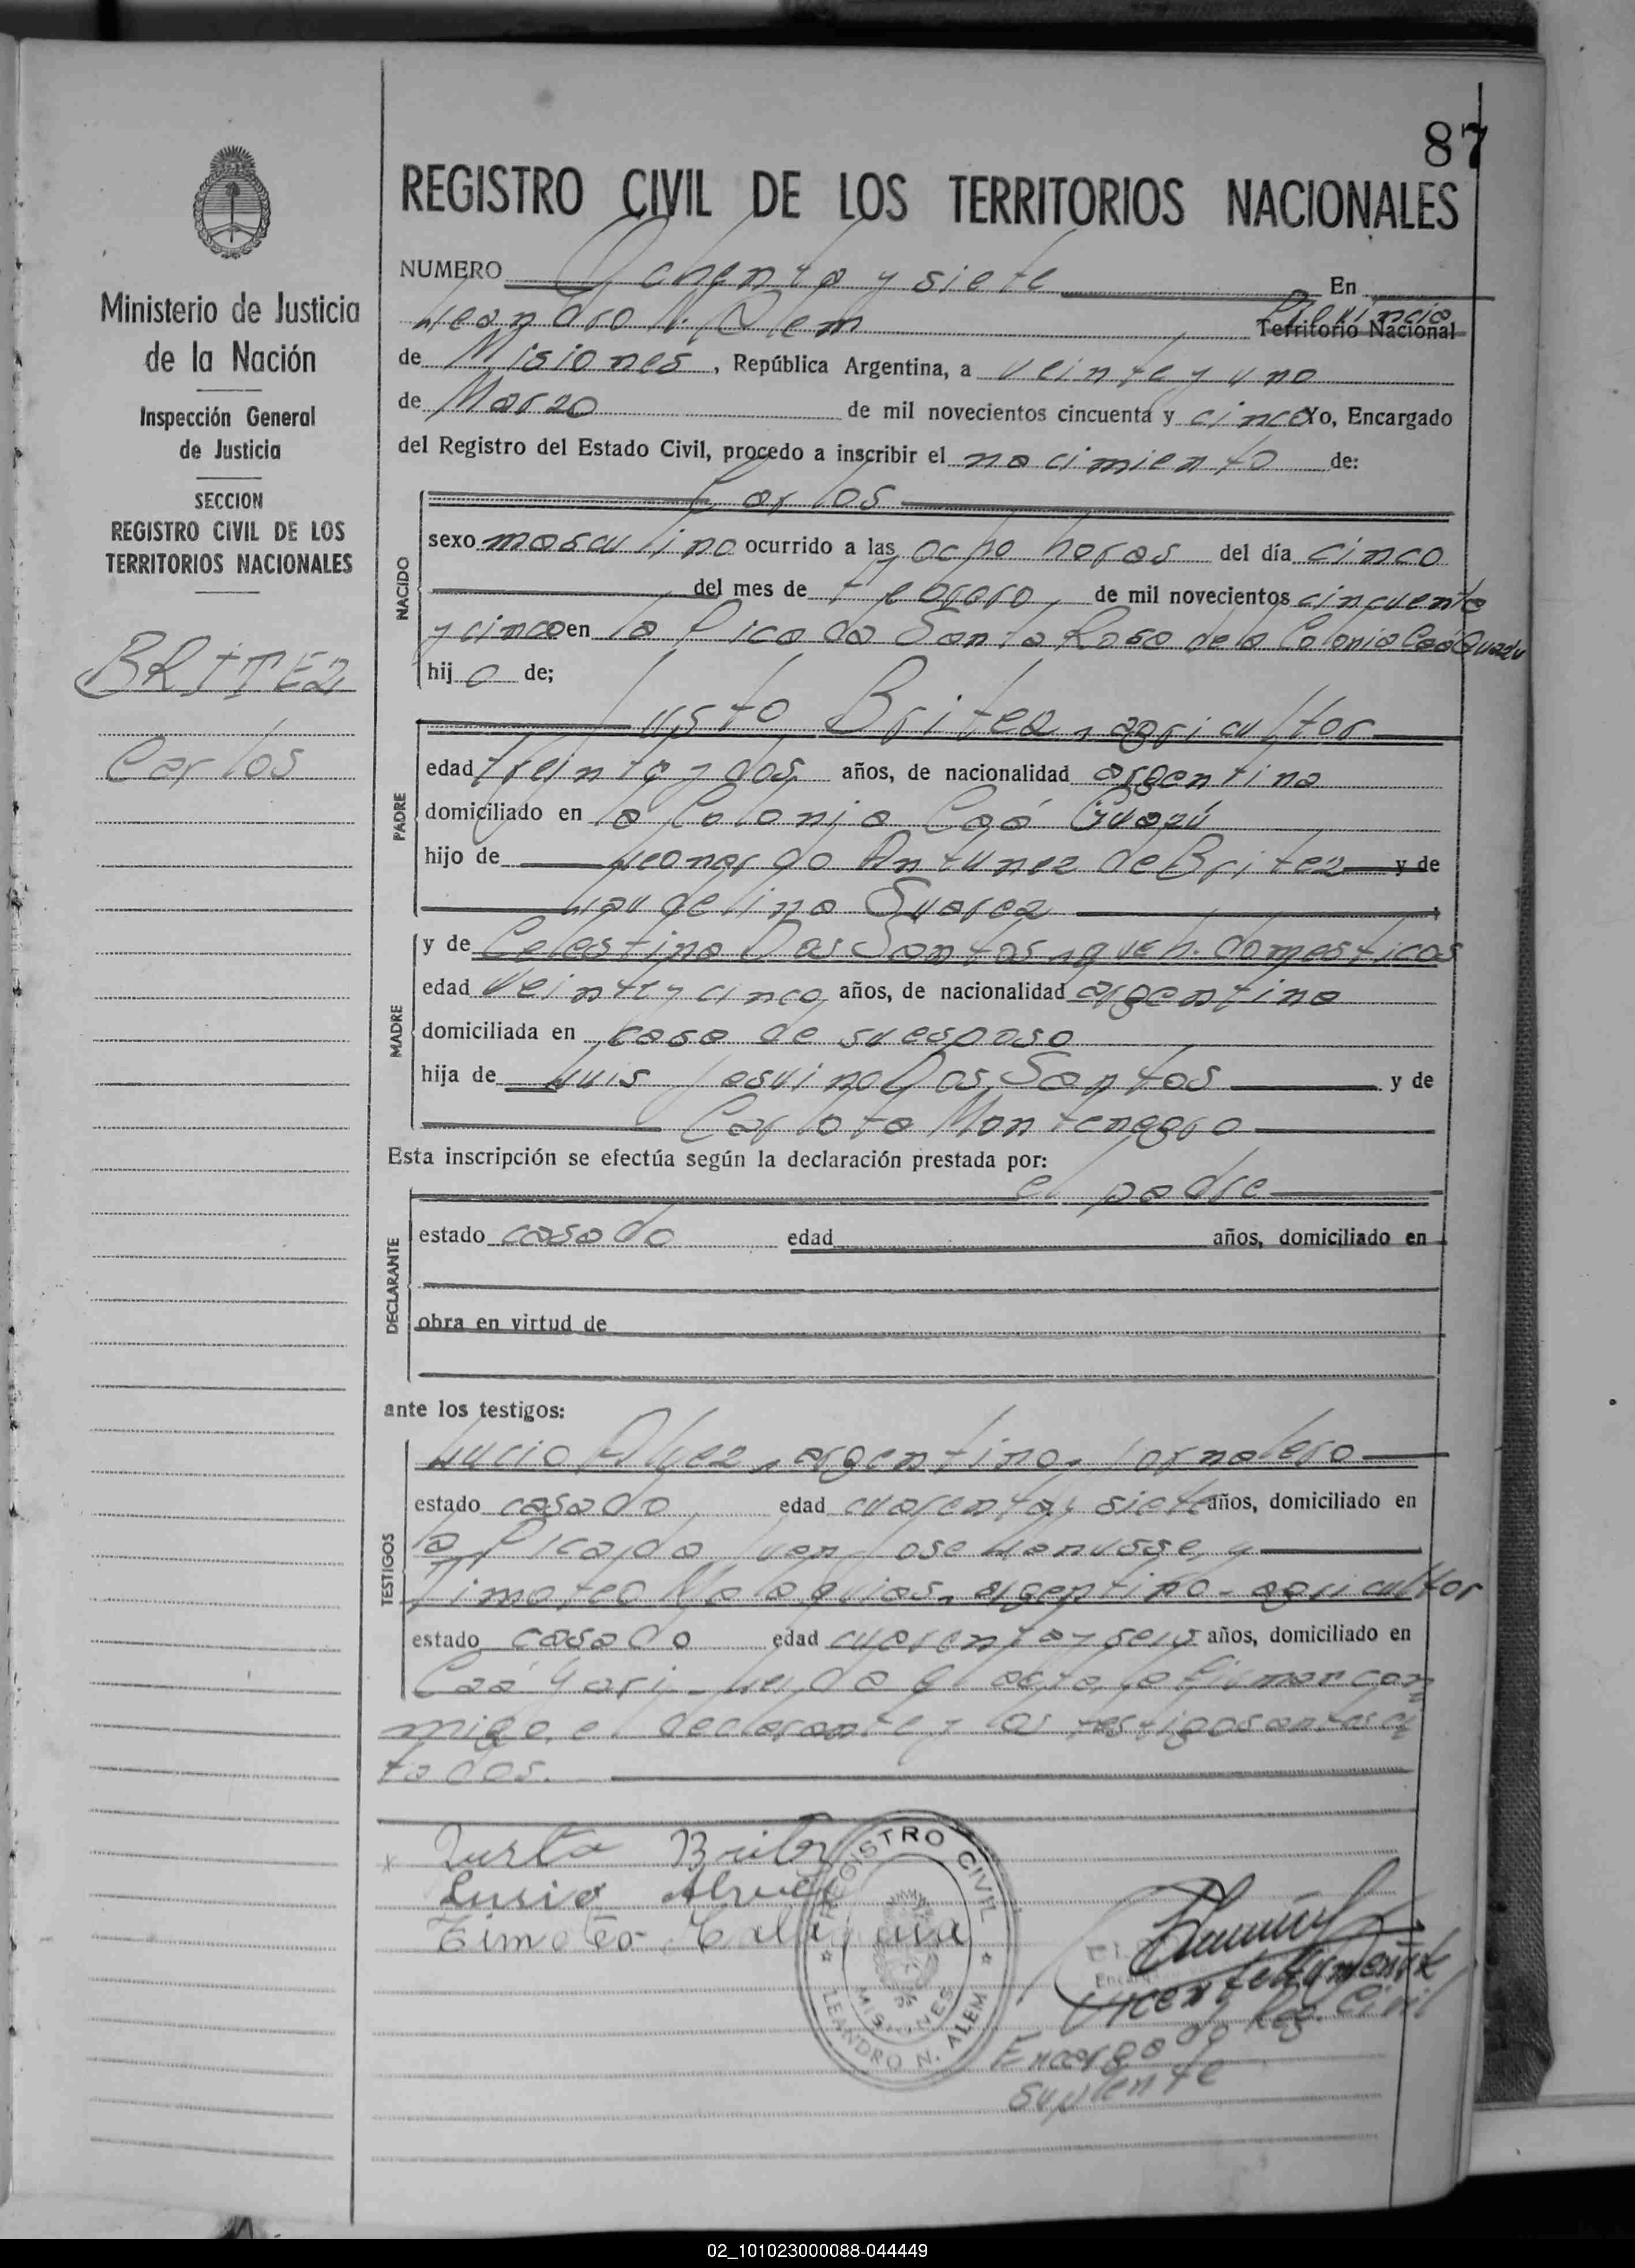 87
REGISTRO CIVIL DE LOS TERRITORIOS NACIONALES
Ministerio de Justicia
de la Nación
Inspección General
de Justicia
SECCION
REGISTRO CIVIL DE LOS
TERRITORIOS NACIONALES
BRITEZ
Carlos
NUMERO Ochenta y siete En
Leandro N. Alem Provincia Territorio Nacional
de Misiones, República Argentina, a veinte y uno
de Marzo de mil novecientos cincuenta y cinco Yo, Encargado
del Registro del Estado Civil, procedo a inscribir el nacimiento de:
Carlos
NACIDO
sexo masculino ocurrido a las ocho horas del día cinco
del mes de Febrero de mil novecientos cincuenta
y cinco en la Picada Santa Rosa de la Colonia Caá Guazú
hijo de;
PADRE
Justo Britez, agricultor
edad treinta y dos años, de nacionalidad argentina
domiciliado en la Colonia Caá Guazú
hijo de Leonardo Antunez de Britez y de
Laudelina Suarez
MADRE
y de Celestina Das Santos, queh. domesticos
edad veinte y cinco años, de nacionalidad argentina
domiciliada en casa de su esposo
hija de Luis Jesuino Das Santos y de
Carlota Montenegro
Esta inscripción se efectúa según la declaración prestada por:
el padre
DECLARANTE
estado casado edad años, domiciliado en
obra en virtud de
ante los testigos:
TESTIGOS
Lucio Alvez, argentino, jornalero
estado casado edad cuarenta y siete años, domiciliado en
la Picada Juan Jose Lanusse, y
Timoteo Malaquias, argentino, agricultor
estado casado edad cuarenta y seis años, domiciliado en
Caá Yari - Leida el acta, la firman con
migo, el declarante y los testigos antes ci
tados.
x Justo Britez
Lusio Alvez
Timoteo
REGISTRO CIVIL
MISIONES
LEANDRO N. ALEM
Vicente
Encargado Reg. Civil
Suplente
02_101023000088-044449